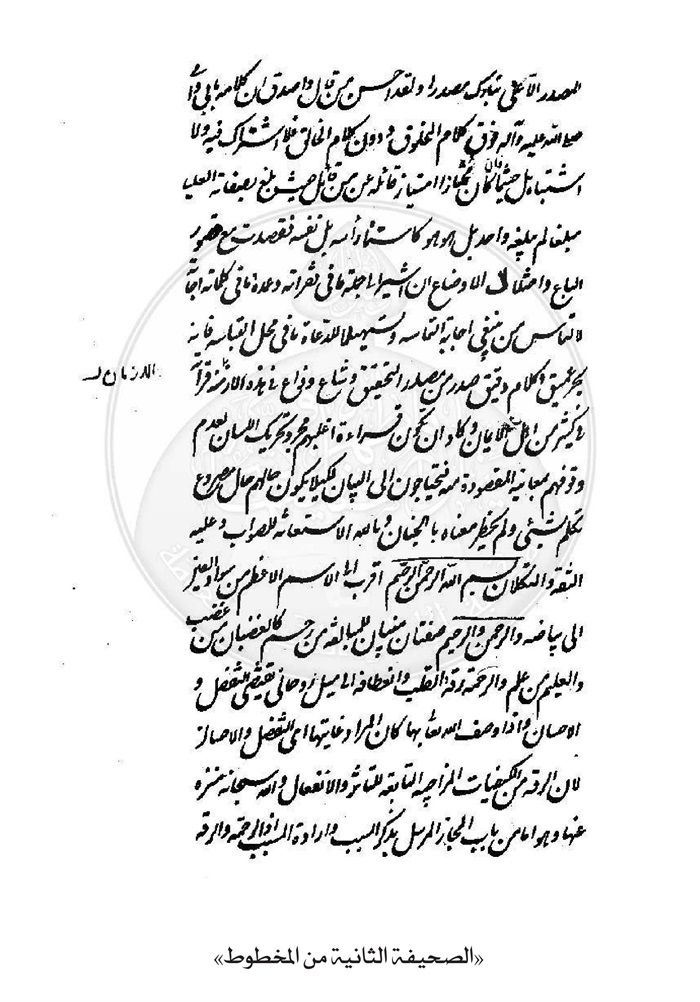 المصدر الأعلى تبارك مصدرا ولقد احسن من قال واصدق ان كلامه بابي وأمي
صلى الله عليه وآله فوق كلام المخلوق ودون كلام الخالق فلا اشتراك فيه ولا
اشتباه بل حيثما كان قائله ممتازا امتياز قائله عن من قائل حيث بلغ بصفاته العليا
مبلغا لم يبلغه واحد بل هو هو كاستنار أسه بل نفسه فقصدت مع قصور
الباع واختلال الاوضاع ان اشير الى جملة ما في فقراته وعدة ما في كلماته اجابة
لالتماس من ينبغي اجابة التماسه وتسهيلا للدعاة ما في محل القباسه فانه
بحر عميق وكلام دقيق صدر من مصدر التحقيق وشاع وذاع في هذه الازمنة قرآته
الازمان
في كثير من اهل الايمان وكاد ان تكون قراءة اغلبهم مجرد تحريك اللسان لعدم
وقوفهم معانيه المقصودة منه فيحتاجون الى البيان لكيلا يكون حالهم حال مصروع
تكلم بشيئ ولم يخطر معناه بالجنان وبالله الاستعانة للصواب وعليه
الثقة والتكلان بسم الله الرحمن الرحيم اقرب الى الاسم الاعظم من سواد العين
الى بياضه والرحمن والرحيم صفتان مبنيان للمبالغة من رحم كالغضبان من غضب
والعليم من علم والرحمة رقة القلب وانعطافه اي ميل روحاني يقتضي التفضل و
الاحسان واذا وصف الله تعالى بها كان المراد غايتها اي التفضل والاحسان
لان الرقة من الكيفيات المزاجية التابعة للتأثر والانفعال والله سبحانه منزه
عنها وهو اما من باب المجاز المرسل بذكر السبب وارادة المسبب اذ الرحمة والرقة
«الصحيفة الثانية من المخطوط»